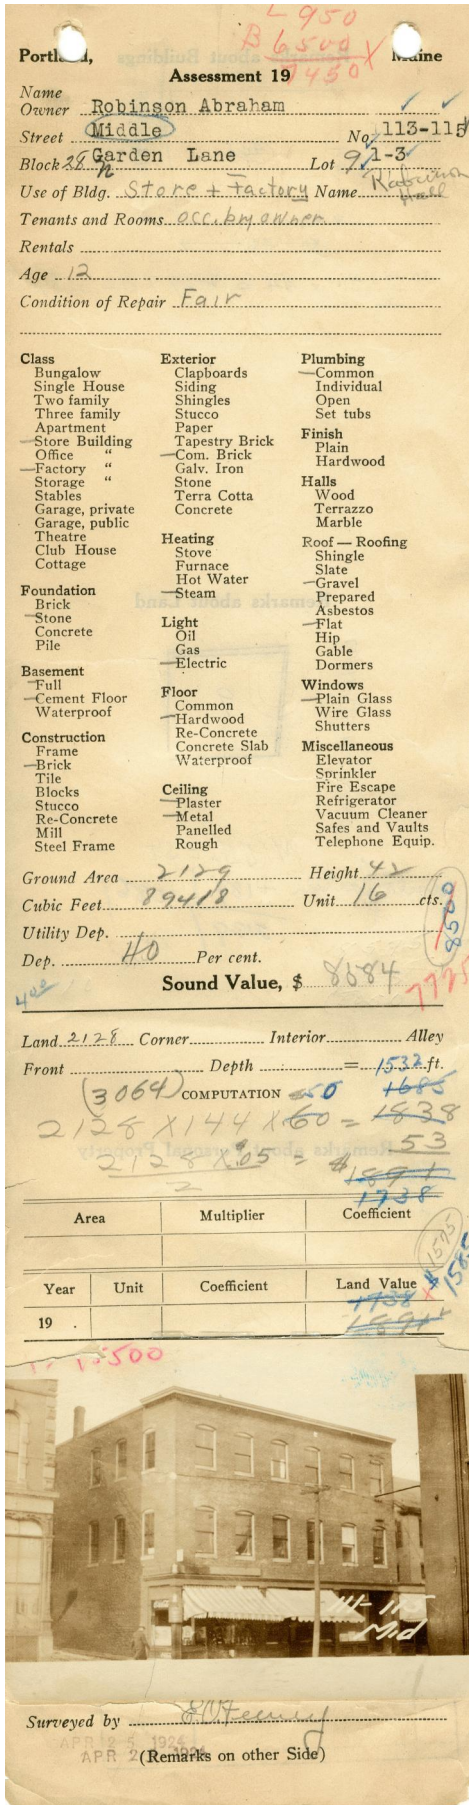 L 950
B 6500 X
7450
Portland, Maine
Assessment 19
Name
Owner Robinson Abraham
Street Middle No. 113-115
Block 28 n Garden Lane Lot 9 1-3
Use of Bldg. Store + Factory Name Robinson Hall
Tenants and Rooms occ. by owner
Rentals
Age 12
Condition of Repair Fair
Class
Bungalow
Single House
Two family
Three family
Apartment
Store Building
Office "
Factory "
Storage "
Stables
Garage, private
Garage, public
Theatre
Club House
Cottage
Foundation
Brick
Stone
Concrete
Pile
Basement
Full
Cement Floor
Waterproof
Construction
Frame
Brick
Tile
Blocks
Stucco
Re-Concrete
Mill
Steel Frame
Exterior
Clapboards
Siding
Shingles
Stucco
Paper
Tapestry Brick
Com. Brick
Galv. Iron
Stone
Terra Cotta
Concrete
Heating
Stove
Furnace
Hot Water
Steam
Light
Oil
Gas
Electric
Floor
Common
Hardwood
Re-Concrete
Concrete Slab
Waterproof
Ceiling
Plaster
Metal
Panelled
Rough
Plumbing
Common
Individual
Open
Set tubs
Finish
Plain
Hardwood
Halls
Wood
Terrazzo
Marble
Roof — Roofing
Shingle
Slate
Gravel
Prepared
Asbestos
Flat
Hip
Gable
Dormers
Windows
Plain Glass
Wire Glass
Shutters
Miscellaneous
Elevator
Sprinkler
Fire Escape
Refrigerator
Vacuum Cleaner
Safes and Vaults
Telephone Equip.
Ground Area 2129 Height 42
Cubic Feet 89418 Unit 16 cts.
8500
Utility Dep.
Dep. 40 Per cent.
Sound Value, $ 8584
7725
400
Land 2128 Corner Interior Alley
Front Depth = 1532 ft.
(3064) COMPUTATION 50 1685
2128 X 144 X 60 = 1838
53
2128 X .05 = $ 1891
2
1738
Area Multiplier Coefficient
1575
1585
Year Unit Coefficient Land Value
1738
19 . 1891
15500
111-115
Mid
Surveyed by
APR 25 1924
APR 2 1924
(Remarks on other Side)